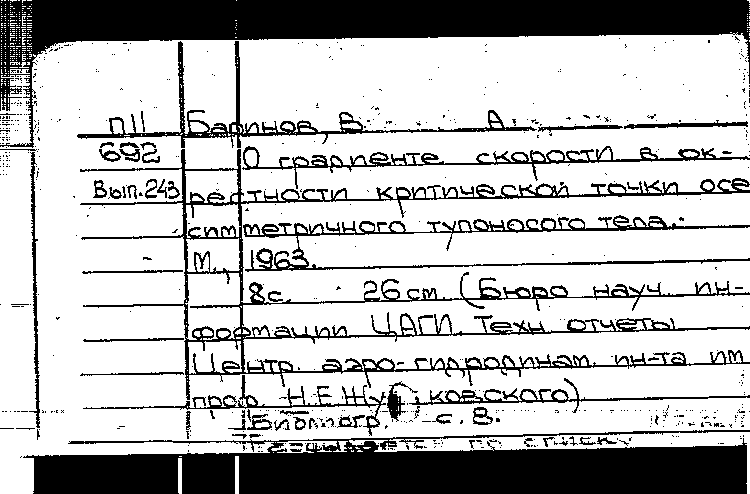 П11 Баринов, В. А.
692 О градиенте скорости в ок-
Вып.243 рестности критической точки осе
симметричного тупоносого тела.-
М., 1963.
8с. 26см. (Бюро науч. ин-
формации ЦАГИ. Техн. отчеты
Центр. аэро-гидродинам. ин-та им
проф. Н.Е.Жуковского)
Библиогр. с. 8.
по списку